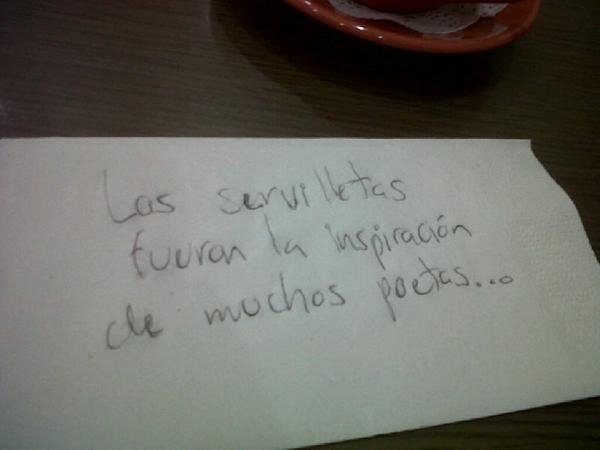 Las servilletas
fueron la inspiración
de muchos poetas...